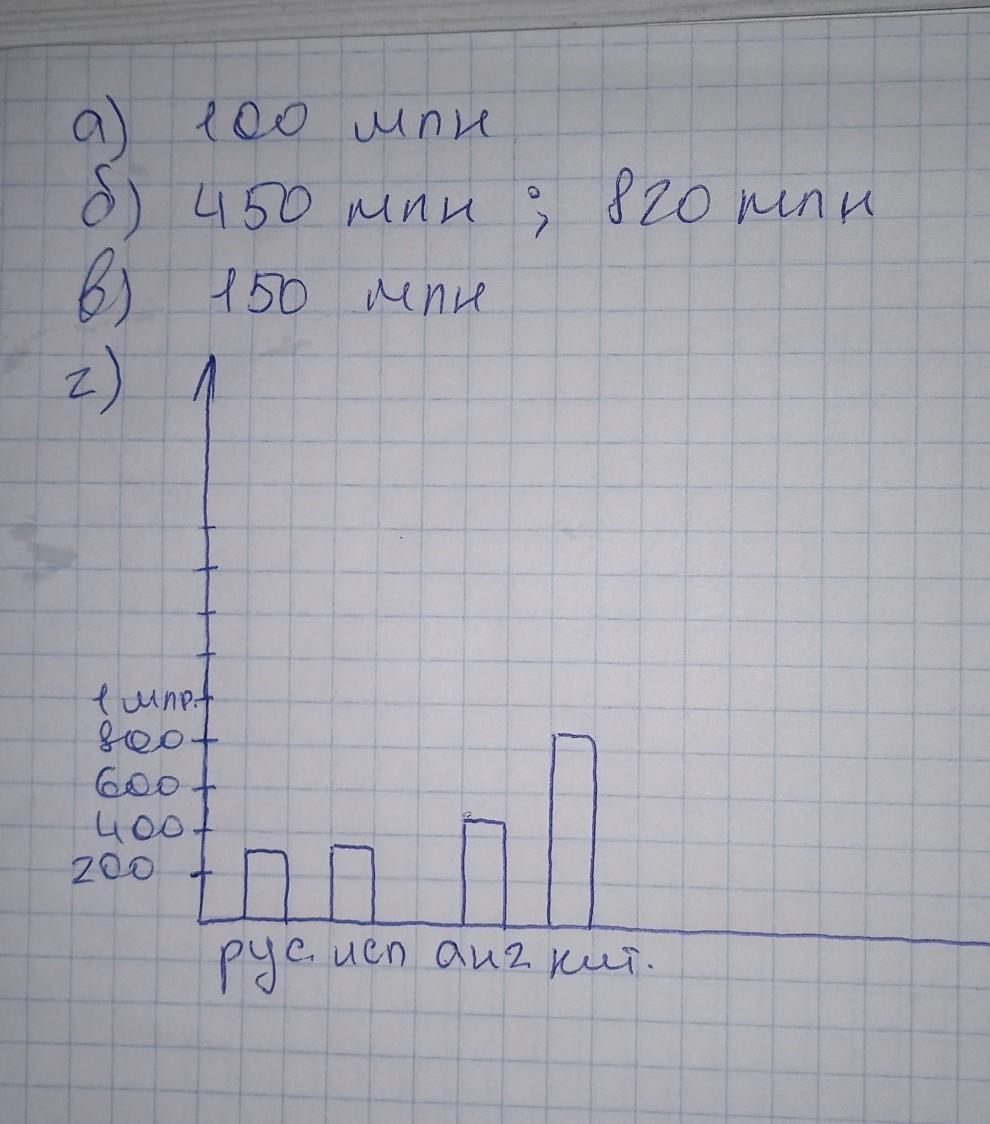 а) 100 млн
б) 450 млн ; 820 млн
в) 150 млн
г)
1 млр.
800
600
400
200
рус. исп анг кит.